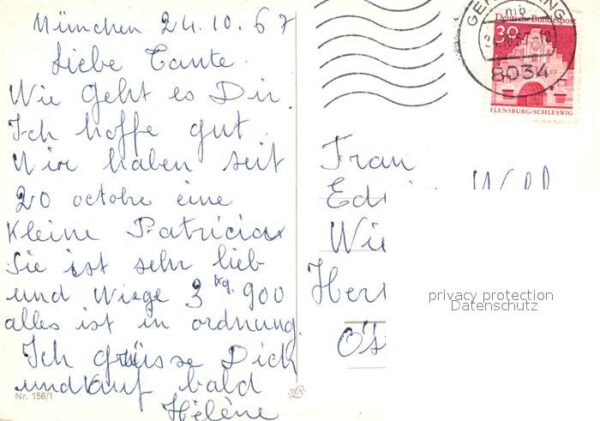 München 24.10.67
Liebe Tante.
Wie geht es Dir
Ich hoffe gut
Wir haben seit
20 octobre eine
Kleine Patricia
Sie ist sehr lieb
und Wiege 3 kg. 900
alles ist in ordnung.
Ich grüsse Dich
und auf bald
Hélène
Nr. 156/1
Deutsche Bundespost
30
8034
FLENSBURG/SCHLESWIG
Frau
Ed
Wie
Herr
Ös
privacy protection
Datenschutz